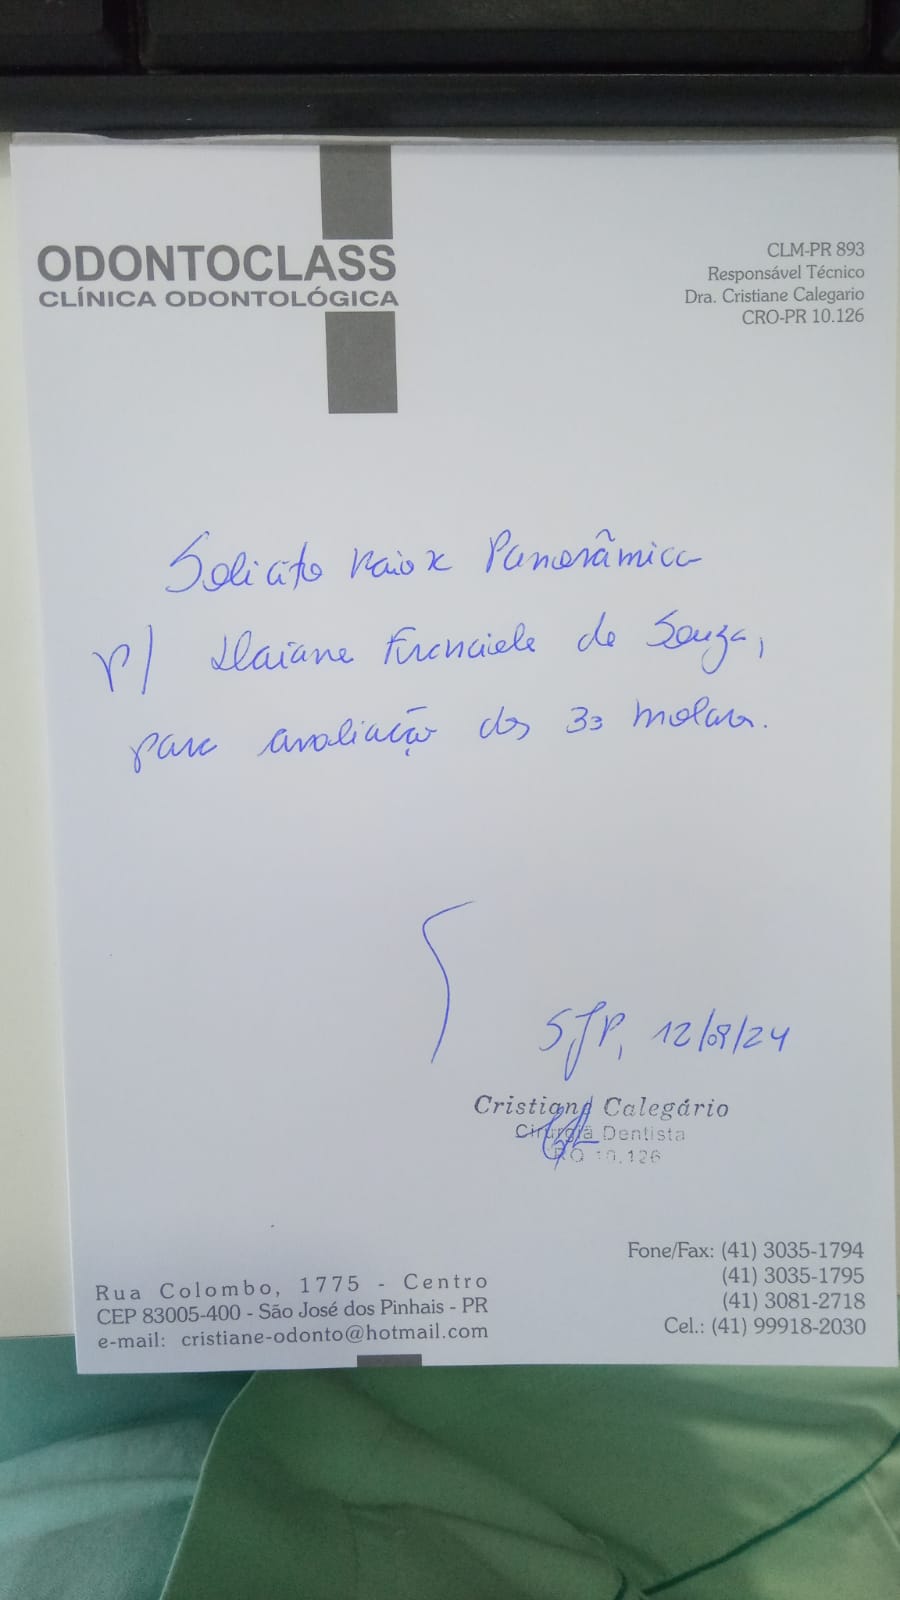 ODONTOCLASS
CLÍNICA ODONTOLÓGICA
CLM-PR 893
Responsável Técnico
Dra. Cristiane Calegario
CRO-PR 10.126
Solicito Raio X Panorâmica
p/ Daiane Franciele de Souza,
para avaliação dos 3s molares.
SJP, 12/09/24
Cristiane Calegário
Cirurgiã Dentista
RO 10.126
Rua Colombo, 1775 - Centro
CEP 83005-400 - São José dos Pinhais - PR
e-mail: cristiane-odonto@hotmail.com
Fone/Fax: (41) 3035-1794
(41) 3035-1795
(41) 3081-2718
Cel.: (41) 99918-2030